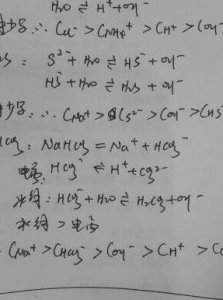 H₂O ⇌ H⁺+OH⁻
∴ C Cl⁻ > C NH₄⁺ > C H⁺ > C OH⁻
S: S²⁻ + H₂O ⇌ HS⁻ + OH⁻
HS⁻ + H₂O ⇌ H₂S + OH⁻
∴ C Na⁺ > C S²⁻ > C OH⁻ > C HS⁻
NaHCO₃ = Na⁺ + HCO₃⁻
电离: HCO₃⁻ ⇌ H⁺ + CO₃²⁻
水解: HCO₃⁻ + H₂O ⇌ H₂CO₃ + OH⁻
水解 > 电离
C Na⁺ > C HCO₃⁻ > C OH⁻ > C H⁺ > C